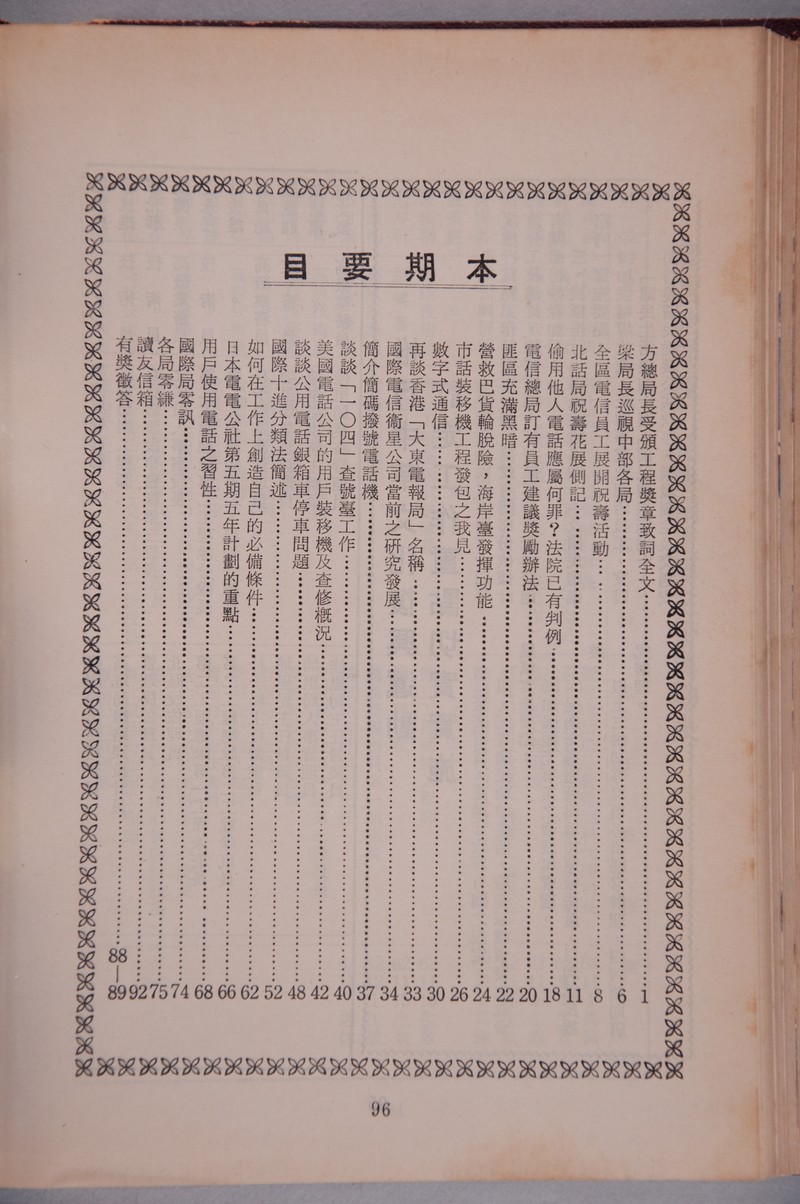 本期要目
方總局長受頒工程獎章致詞全文……1
梁局長巡視中部各局……6
全區電信員工展開祝壽活動……8
北話局祝壽花展側記……11
偷用他人電話應屬何罪？法院已有判例……18
電信總局訂有員工建議獎勵辦法……20
匪區充滿黑暗……22
營救巴貨輪脫險，海岸臺發揮功能……24
市話裝移機工程發包之我見……26
數字式通信……30
再談香港「大東電報局」名稱……33
國際電信衛星公司當前之研究發展……34
簡介簡碼撥號電話機……37
談談「一〇四」查號臺工作……40
美國電話公司的用戶裝移機及查修概況……42
談談公用電話銀箱車停車問題……48
國際十進分類法簡述……52
如何在工作上創造自己的必備條件……62
日本電電公社第五期五年計劃的重點……66
用戶使用電話之習性……68
國際局零訊……74
各局零縑……75
讀友信箱……92
有獎徵答……88—89
96